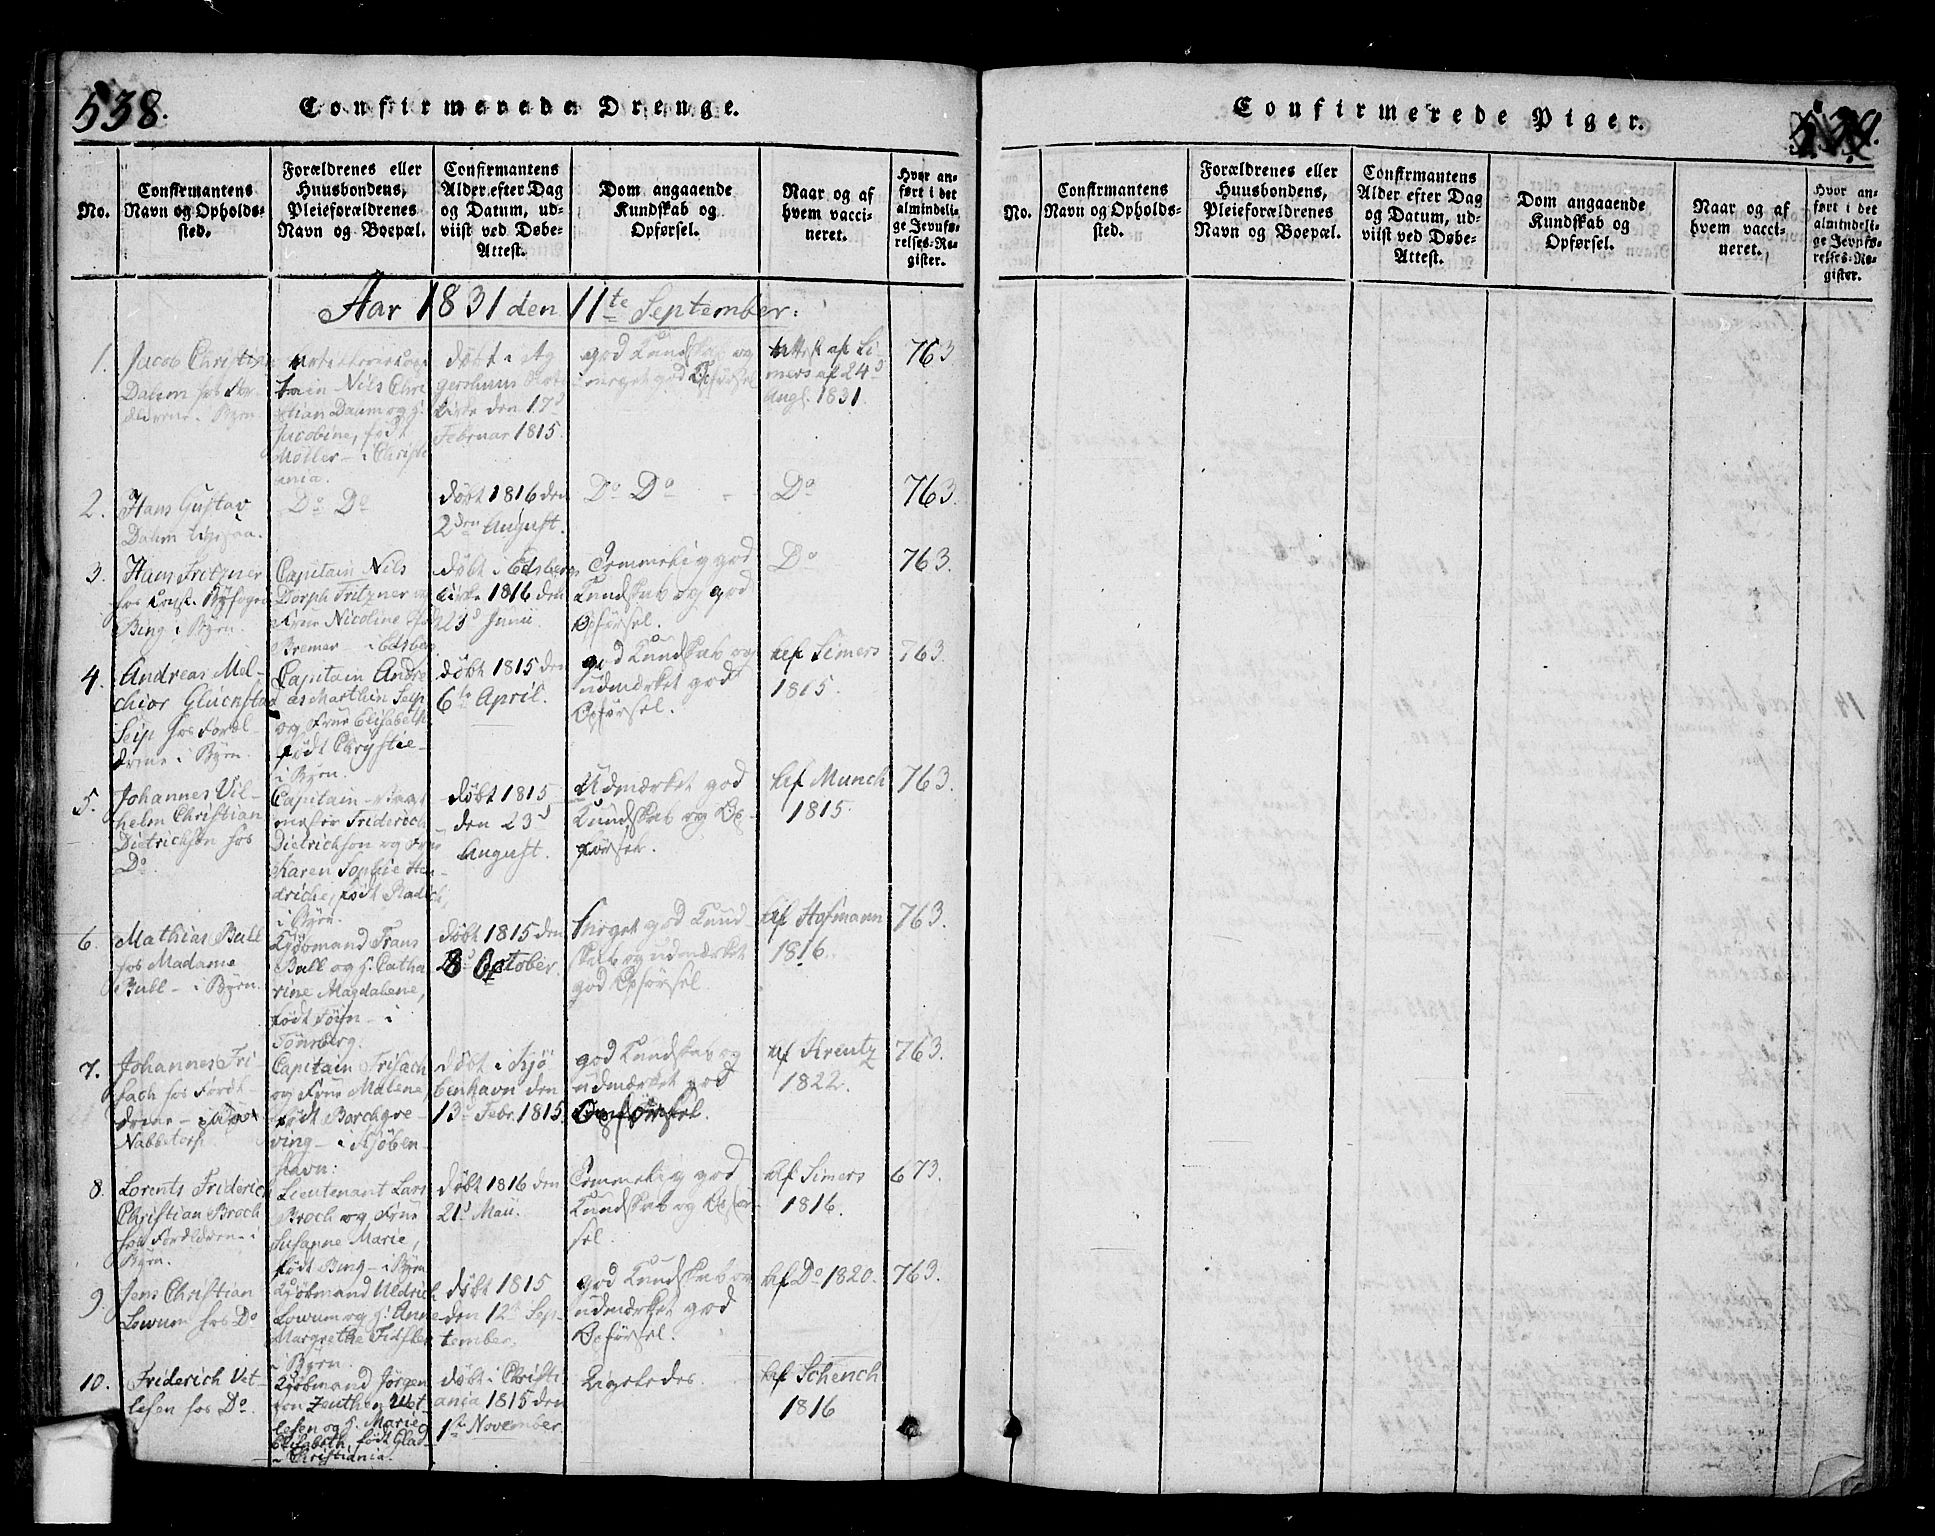 538.
Confirmerede Drenge.
No.
Confirmantens
Navn og Opholds-
sted.
Forældrenes eller
Huusbondens,
Pleieforældrenes
Navn og Boepæl.
Confirmantens
Alder efter Dag
og Datum, ud-
viist ved Døbe-
Attest.
Dom angaaende
Kundskab og
Opførsel.
Naar og af
hvem vacci-
neret.
Hvor an-
ført i det
almindeli-
ge Jevnfø-
relses-Re-
gister.
Aar 1831 den 11te September:
1.
Jacob Christian
Daum hos For-
ældrene i Byen
tain Nils Chri
stian Daum og H.
Jacobine, født
Møller - i Christi
ania.
døbt i Ag
gershuus Slots
Kirke den 17d
Februar 1815.
god Kundskab og
meget god Opførsel
Attest af Si
mers af 24d
Augt. 1831.
763
2.
Hans Gustav
Daum ligesaa.
Do Do
døbt 1816 den
2den August.
Do Do
Do
763.
3.
Hans Fritzner
hos Const. Byfoged
Bing i Byen.
Capitain Nils
Dorph Fritzner og
Frue Nicoline født
Bremer - i Edsberg
døbt i Edsbergs
Kirke 1816 den
23d Junii.
Temmelig god
Kundskab og god
Opførsel.
Do
763.
4.
Andreas Mel-
chior Glückstad
Seip hos Foræl-
drene i Byen.
Capitain Andre
as Marthin Seip
og Frue Elisabeth
født Chrystie -
i Byen.
døbt 1815 den
6te April.
god Kundskab og
udmærket god
Opførsel.
af Simers
1815.
763.
5.
Johannes Vil-
helm Christian
Dietrichson hos
Do.
Capitain
Friderich
Dietrichson og Frue
Karen Sophie Hen-
driche, født Radich,
i Byen.
døbt 1815
den 23d
August.
Udmærket god
Kundskab og Op-
førsel.
af Munch
1815.
763.
6.
Mathias Bull
hos Madame
Bull - i Byen.
Kjøbmand Frans
Bull og H. Catha
rine Magdalene,
født - i
Tønsberg.
døbt 1815 den
8 October.
meget god Kund-
skab og udmærket
god Opførsel.
af Hofmann
1816.
763.
7.
Johannes Fri-
sach hos Foræl-
drene -
Nabbetorp.
Capitain Frisach
og Frue Malene,
født Borchgre-
ving - i Kjøben-
havn:
døbt i Kjø
benhavn den
13d Febr. 1815.
god Kundskab og
udmærket god
Opførsel.
af Kreutz
1822.
763.
8.
Lorents Friderich
Christian Broch
hos Forældrene i
Byen.
Lieutenant Lars
Broch og Frue
Susanne Marie,
født Bing - i Byen
døbt 1816 den
21d Maii.
Temmelig god
Kundskab og Opfør-
sel.
af Simers
1816.
673.
9.
Jens Christian
Lowum hos Do
Kjøbmand Uldrich
Lowum og H. Anne
Margrethe
i Byen.
døbt 1815
den 12te Sep-
tember.
god Kundskab og
udmærket god
Opførsel.
af Do 1820.
763.
10.
Friderich Vet-
lesen hos Do.
Kjøbmand Jørgen
von Zeuthen Vet-
lesen og H. Marie
Elisabeth, født Glad-
i Christiania.
døbt i Christi
ania 1815 den
1ste November
Ligeledes.
af Schench
1816
Confirmerede Piger.
No.
Confirmantens
Navn og Opholds-
sted.
Forældrenes eller
Huusbondens,
Pleieforældrenes
Navn og Boepæl.
Confirmantens
Alder efter Dag
og Datum, ud-
viist ved Døbe-
Attest.
Dom angaaende
Kundskab og
Opførsel.
Naar og af
hvem vacci-
neret.
Hvor an-
ført i det
almindeli-
ge Jevnfø-
relses-Re-
gister.